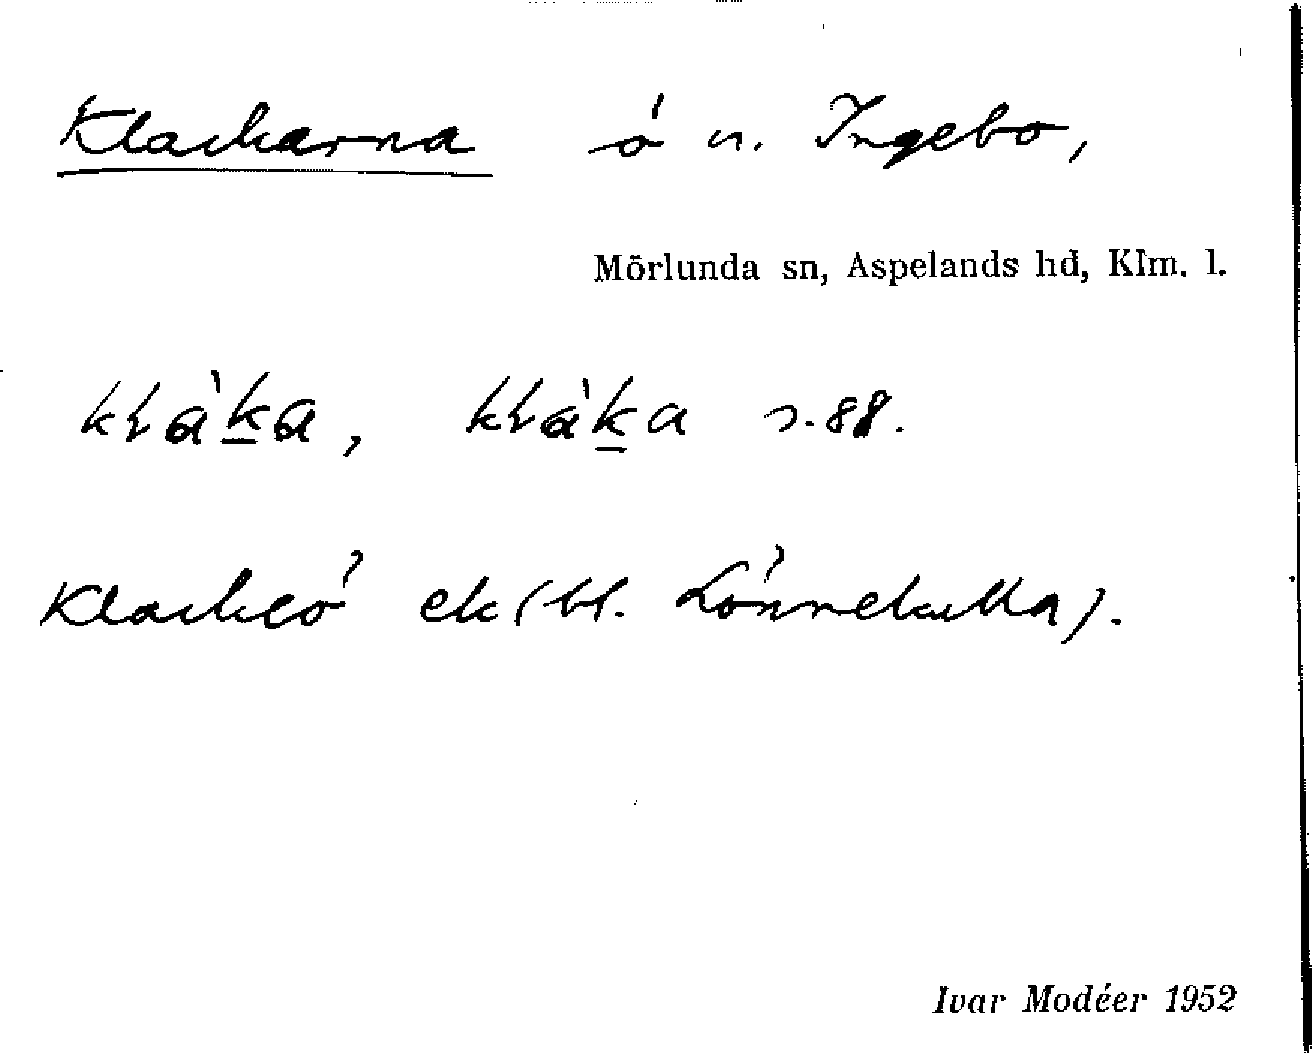 Klackarna ö n. Ingebo,
Mörlunda sn, Aspelands hd, Klm. l.
kɫàk̲a, kɫàk̲a s.88.
Klackeö ek (bl. Lönnekulla).
Ivar Modéer 1952